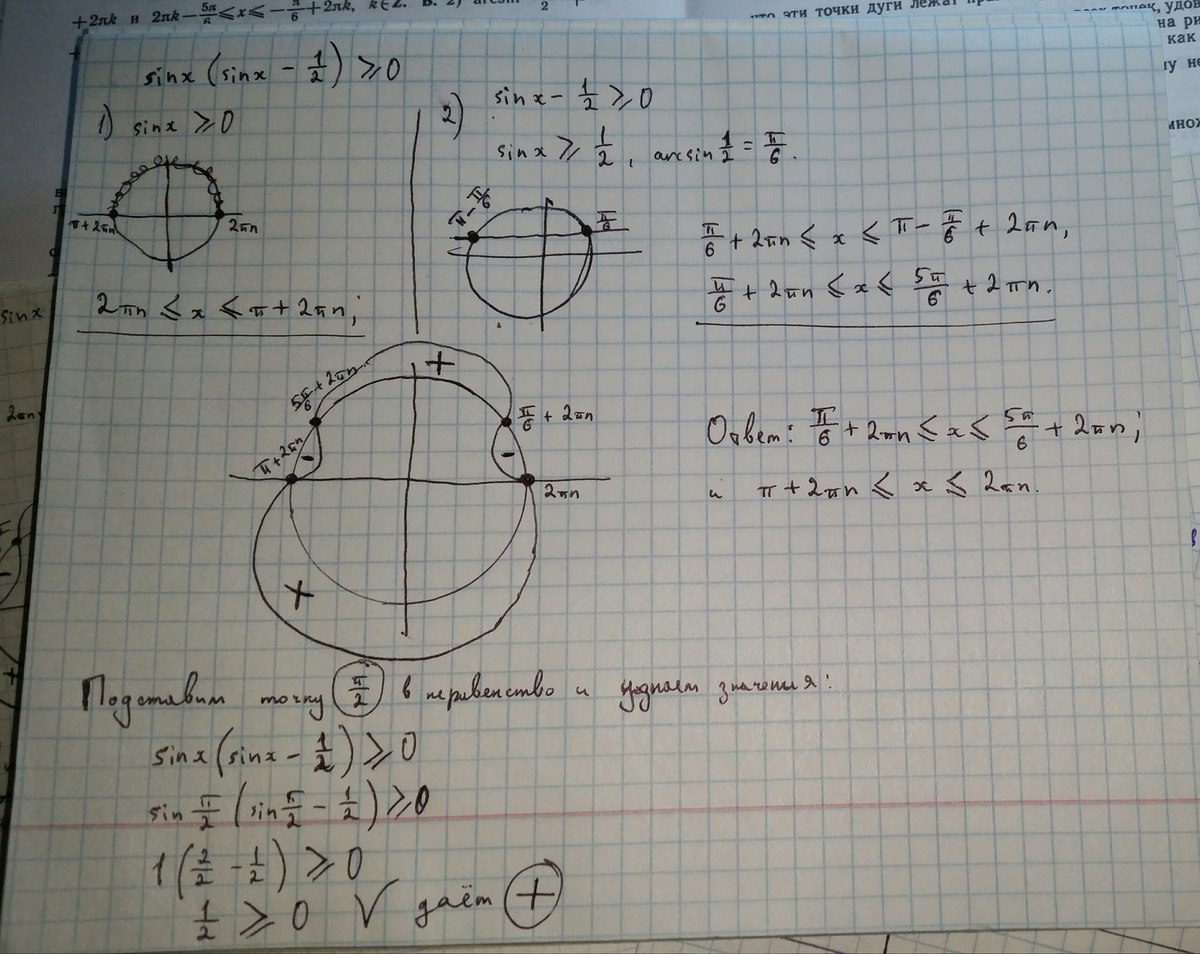 +2πk и 2πk − 5π/6 ⩽ x ⩽ − π/6 + 2πk, k∈Z.
что эти точки дуги лежат
на ри
как
sin x (sin x − 1/2) ⩾ 0
1) sin x ⩾ 0
π+2πn
2πn
2πn ⩽ x ⩽ π + 2πn;
2) sin x − 1/2 ⩾ 0
sin x ⩾ 1/2, arcsin 1/2 = π/6.
π − π/6
π/6
π/6 + 2πn ⩽ x ⩽ π − π/6 + 2πn,
π/6 + 2πn ⩽ x ⩽ 5π/6 + 2πn.
sin x
2πn
+
5π/6 + 2πn
π/6 + 2πn
−
−
π+2πn
2πn
+
Ответ: π/6 + 2πn ⩽ x ⩽ 5π/6 + 2πn;
и π + 2πn ⩽ x ⩽ 2πn.
Подставим точку π/2 в неравенство и узнаем значения:
sin x (sin x − 1/2) ⩾ 0
sin π/2 (sin π/2 − 1/2) ⩾ 0
1 (2/2 − 1/2) ⩾ 0
1/2 ⩾ 0 V даёт +